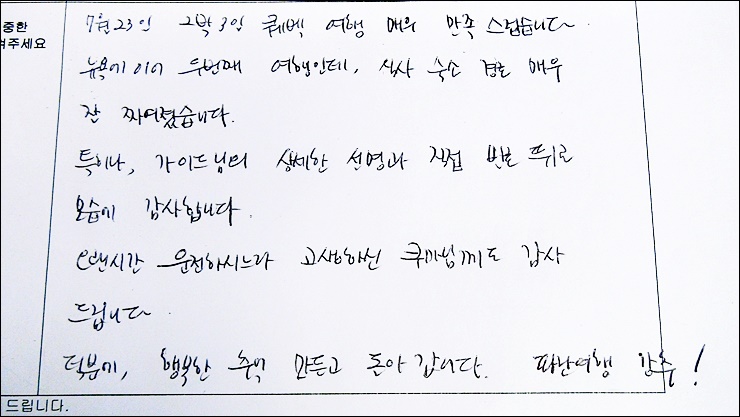 중한
겨주세요
7월 23일 2박 3일 퀘벡 여행 매우 만족스럽습니다
뉴욕에 이어 두번째 여행인데, 식사 숙소 경로 매우
잘 짜여졌습니다.
특히나, 가이드님의 상세한 설명과 직접 발로 뛰는
모습에 감사합니다.
오랜시간 운전하시느라 고생하신 쿠마님께도 감사
드립니다
덕분에, 행복한 추억 만들고 돌아갑니다. 파란여행 강추!
드립니다.